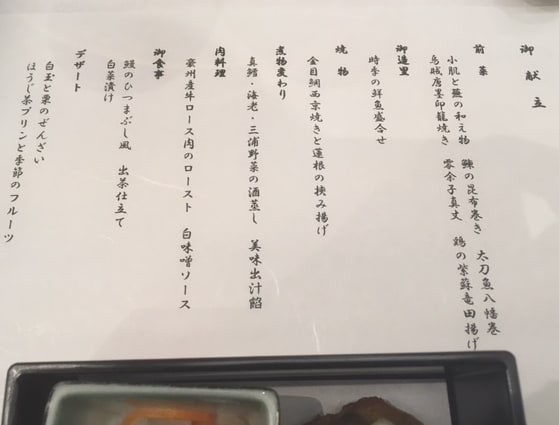 御献立
前菜
小肌と蕪の和え物 鰊の昆布巻き 太刀魚八幡巻
烏賊唐墨印籠焼き 零余子真丈 鶏の紫蘇竜田揚げ
御造里
時季の鮮魚盛合せ
焼物
金目鯛西京焼きと蓮根の挟み揚げ
煮物変わり
真鱈・海老・三浦野菜の酒蒸し 美味出汁餡
肉料理
豪州産牛ロース肉のロースト 白味噌ソース
御食事
鰻のひつまぶし風 出茶仕立て
白菜漬け
デザート
白玉と栗のぜんざい
ほうじ茶プリンと季節のフルーツ